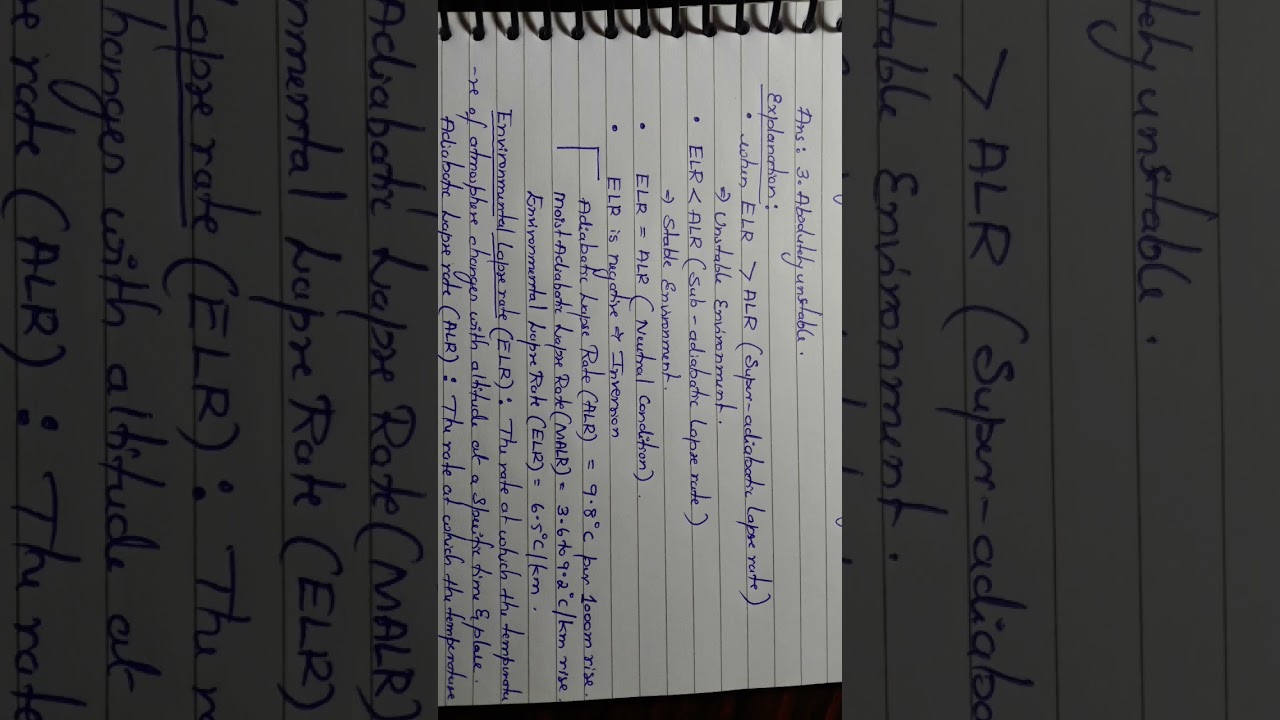 Ans: 3. Absolutely unstable.
Explanation:
• when ELR > ALR (Super-adiabatic lapse rate)
⇒ Unstable Environment.
• ELR < ALR (Sub-adiabatic lapse rate)
⇒ Stable Environment.
• ELR = ALR (Neutral Condition).
• ELR is negative ⇒ Inversion
Adiabatic Lapse Rate (ALR) = 9.8°C per 1000m rise.
Moist Adiabatic Lapse Rate (MALR) = 3.6 to 9.2°C/km rise.
Environmental Lapse Rate (ELR) = 6.5°C/km.
Environmental Lapse rate (ELR): The rate at which the temperatu
-re of atmosphere changes with altitude at a specific time & place.
Adiabatic Lapse rate (ALR): The rate at which the temperature